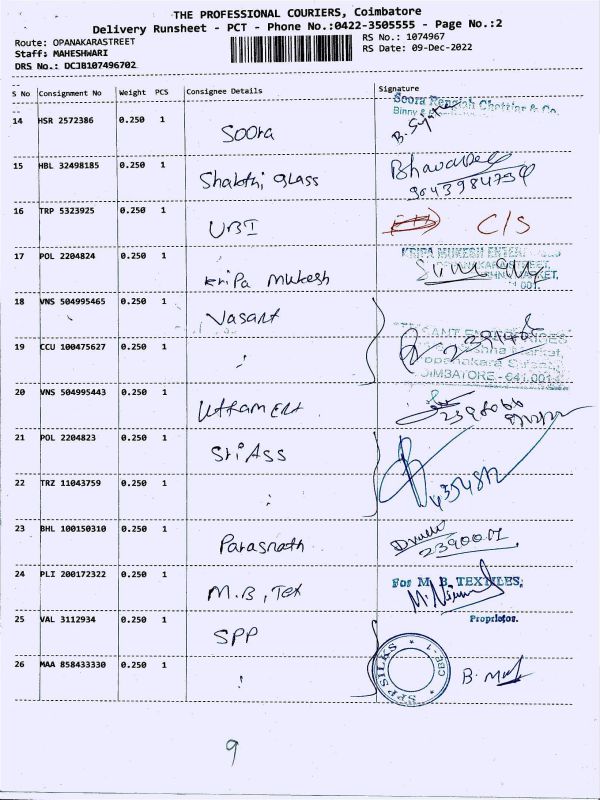 THE PROFESSIONAL COURIERS, Coimbatore
Delivery Runsheet - PCT - Phone No.:0422-3505555 - Page No.:2
Route: OPANAKARASTREET
RS No.: 1074967
Staff: MAHESHWARI
RS Date: 09-Dec-2022
DRS No.: DCJB107496702
S No Consignment No Weight PCS Consignee Details Signature
Soora Rengiah Chettiar & Co.
14 HSR 2572386 0.250 1 Soora
15 HBL 32498185 0.250 1 Shakthi Glass
16 TRP 5323925 0.250 1 UBI C/S
KRIPA MUKESH
17 POL 2204824 0.250 1 Kripa Mukesh
18 VNS 504995465 0.250 1 Vasant
19 CCU 100475627 0.250 1 "
COIMBATORE - 641 001
20 VNS 504995443 0.250 1 Uttam Ent
21 POL 2204823 0.250 1 Sri Ass
22 TRZ 11043759 0.250 1 "
23 BHL 100150310 0.250 1 Parasnath
2390001
24 PLI 200172322 0.250 1 M.B, Tex For M. B. TEXTILES,
25 VAL 3112934 0.250 1 SPP Proprietor.
26 MAA 858433330 0.250 1 "
SPP SILKS * CBE-1 *
9